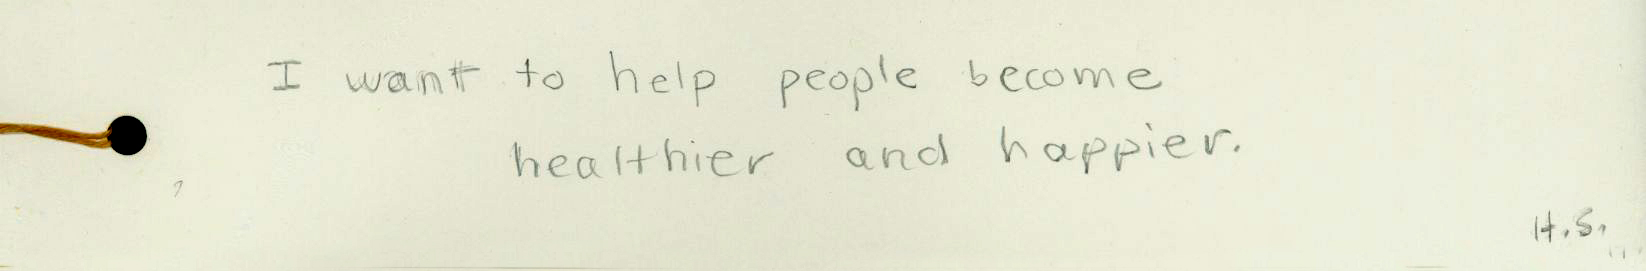 I want to help people become
healthier and happier.
H.S.